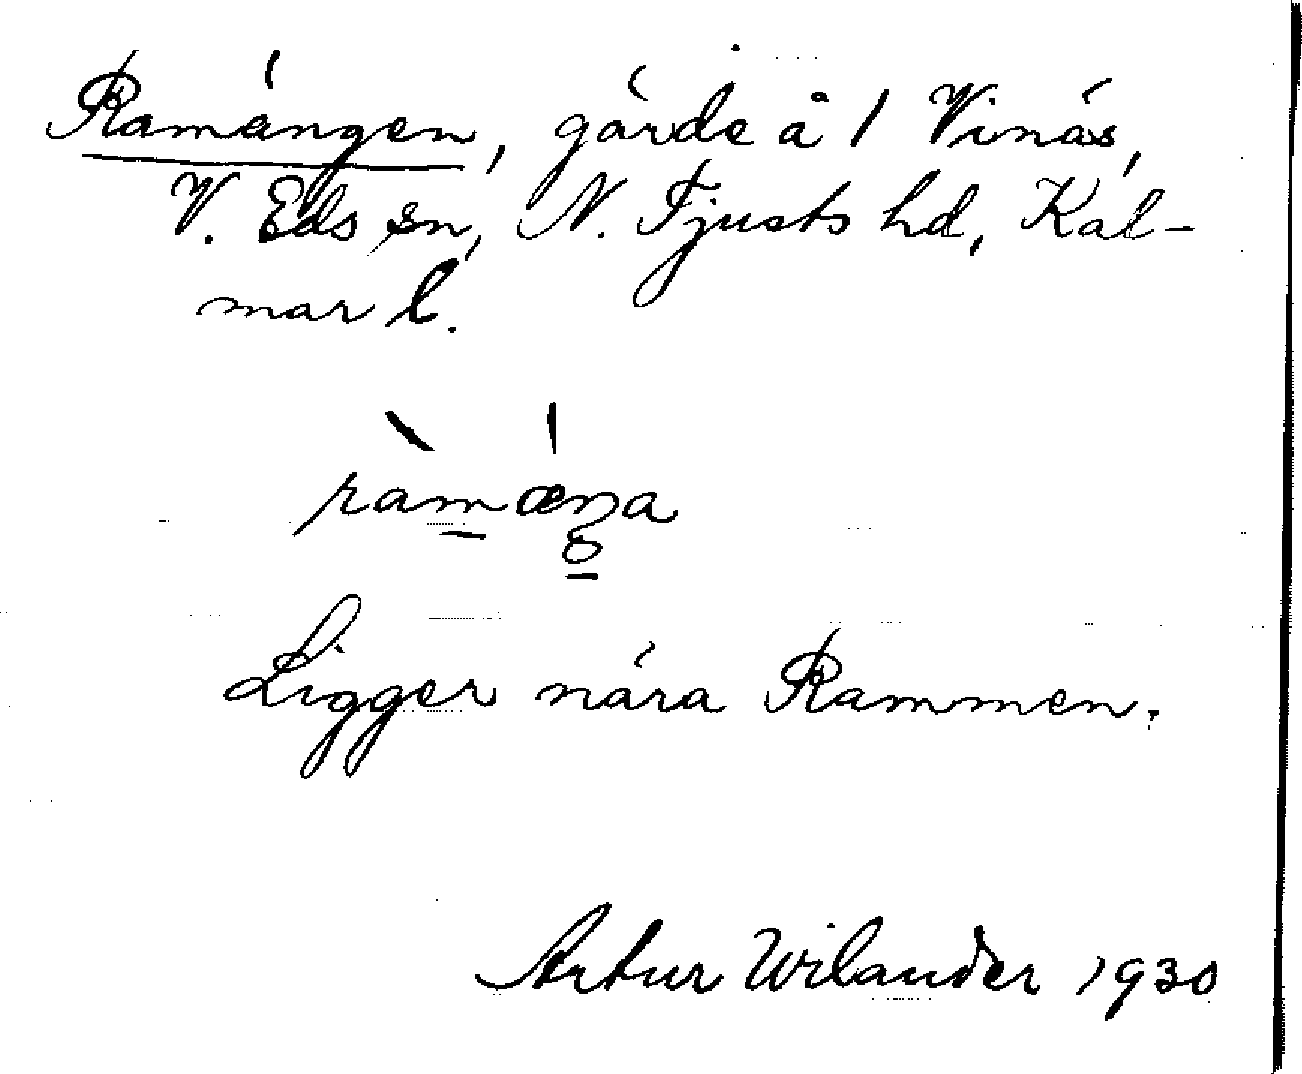 Ramängen, gärde å 1 Vinäs,
V. Eds sn, N. Tjusts hd, Kal-
mar l.
ràmǽŋa
Ligger nära Rammen.
Artur Wilander 1930